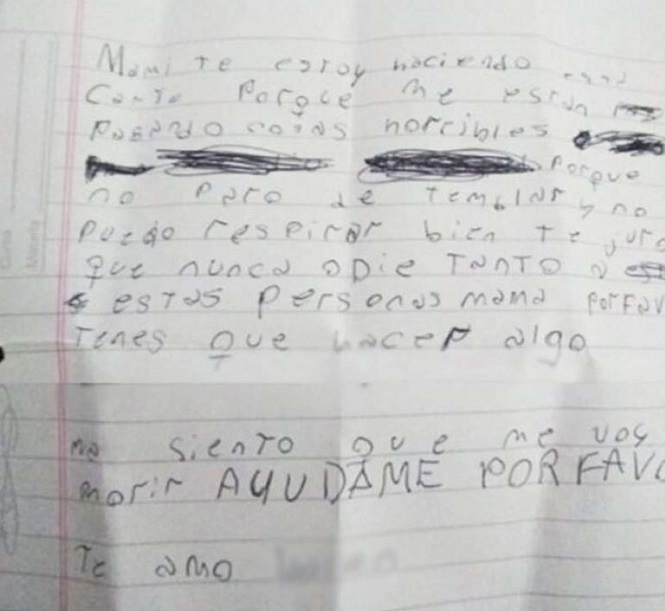 Mami te estoy haciendo esta
Carta Porque me están
Pasando cosas horribles
Porque
no Paro de temblar y no
Puedo respirar bien Te juro
que nunca odie TANTO a
estas personas mama PorFav
Tenes que hacer algo
me siento que me voy
morir AYUDAME POR FAVO
Te amo